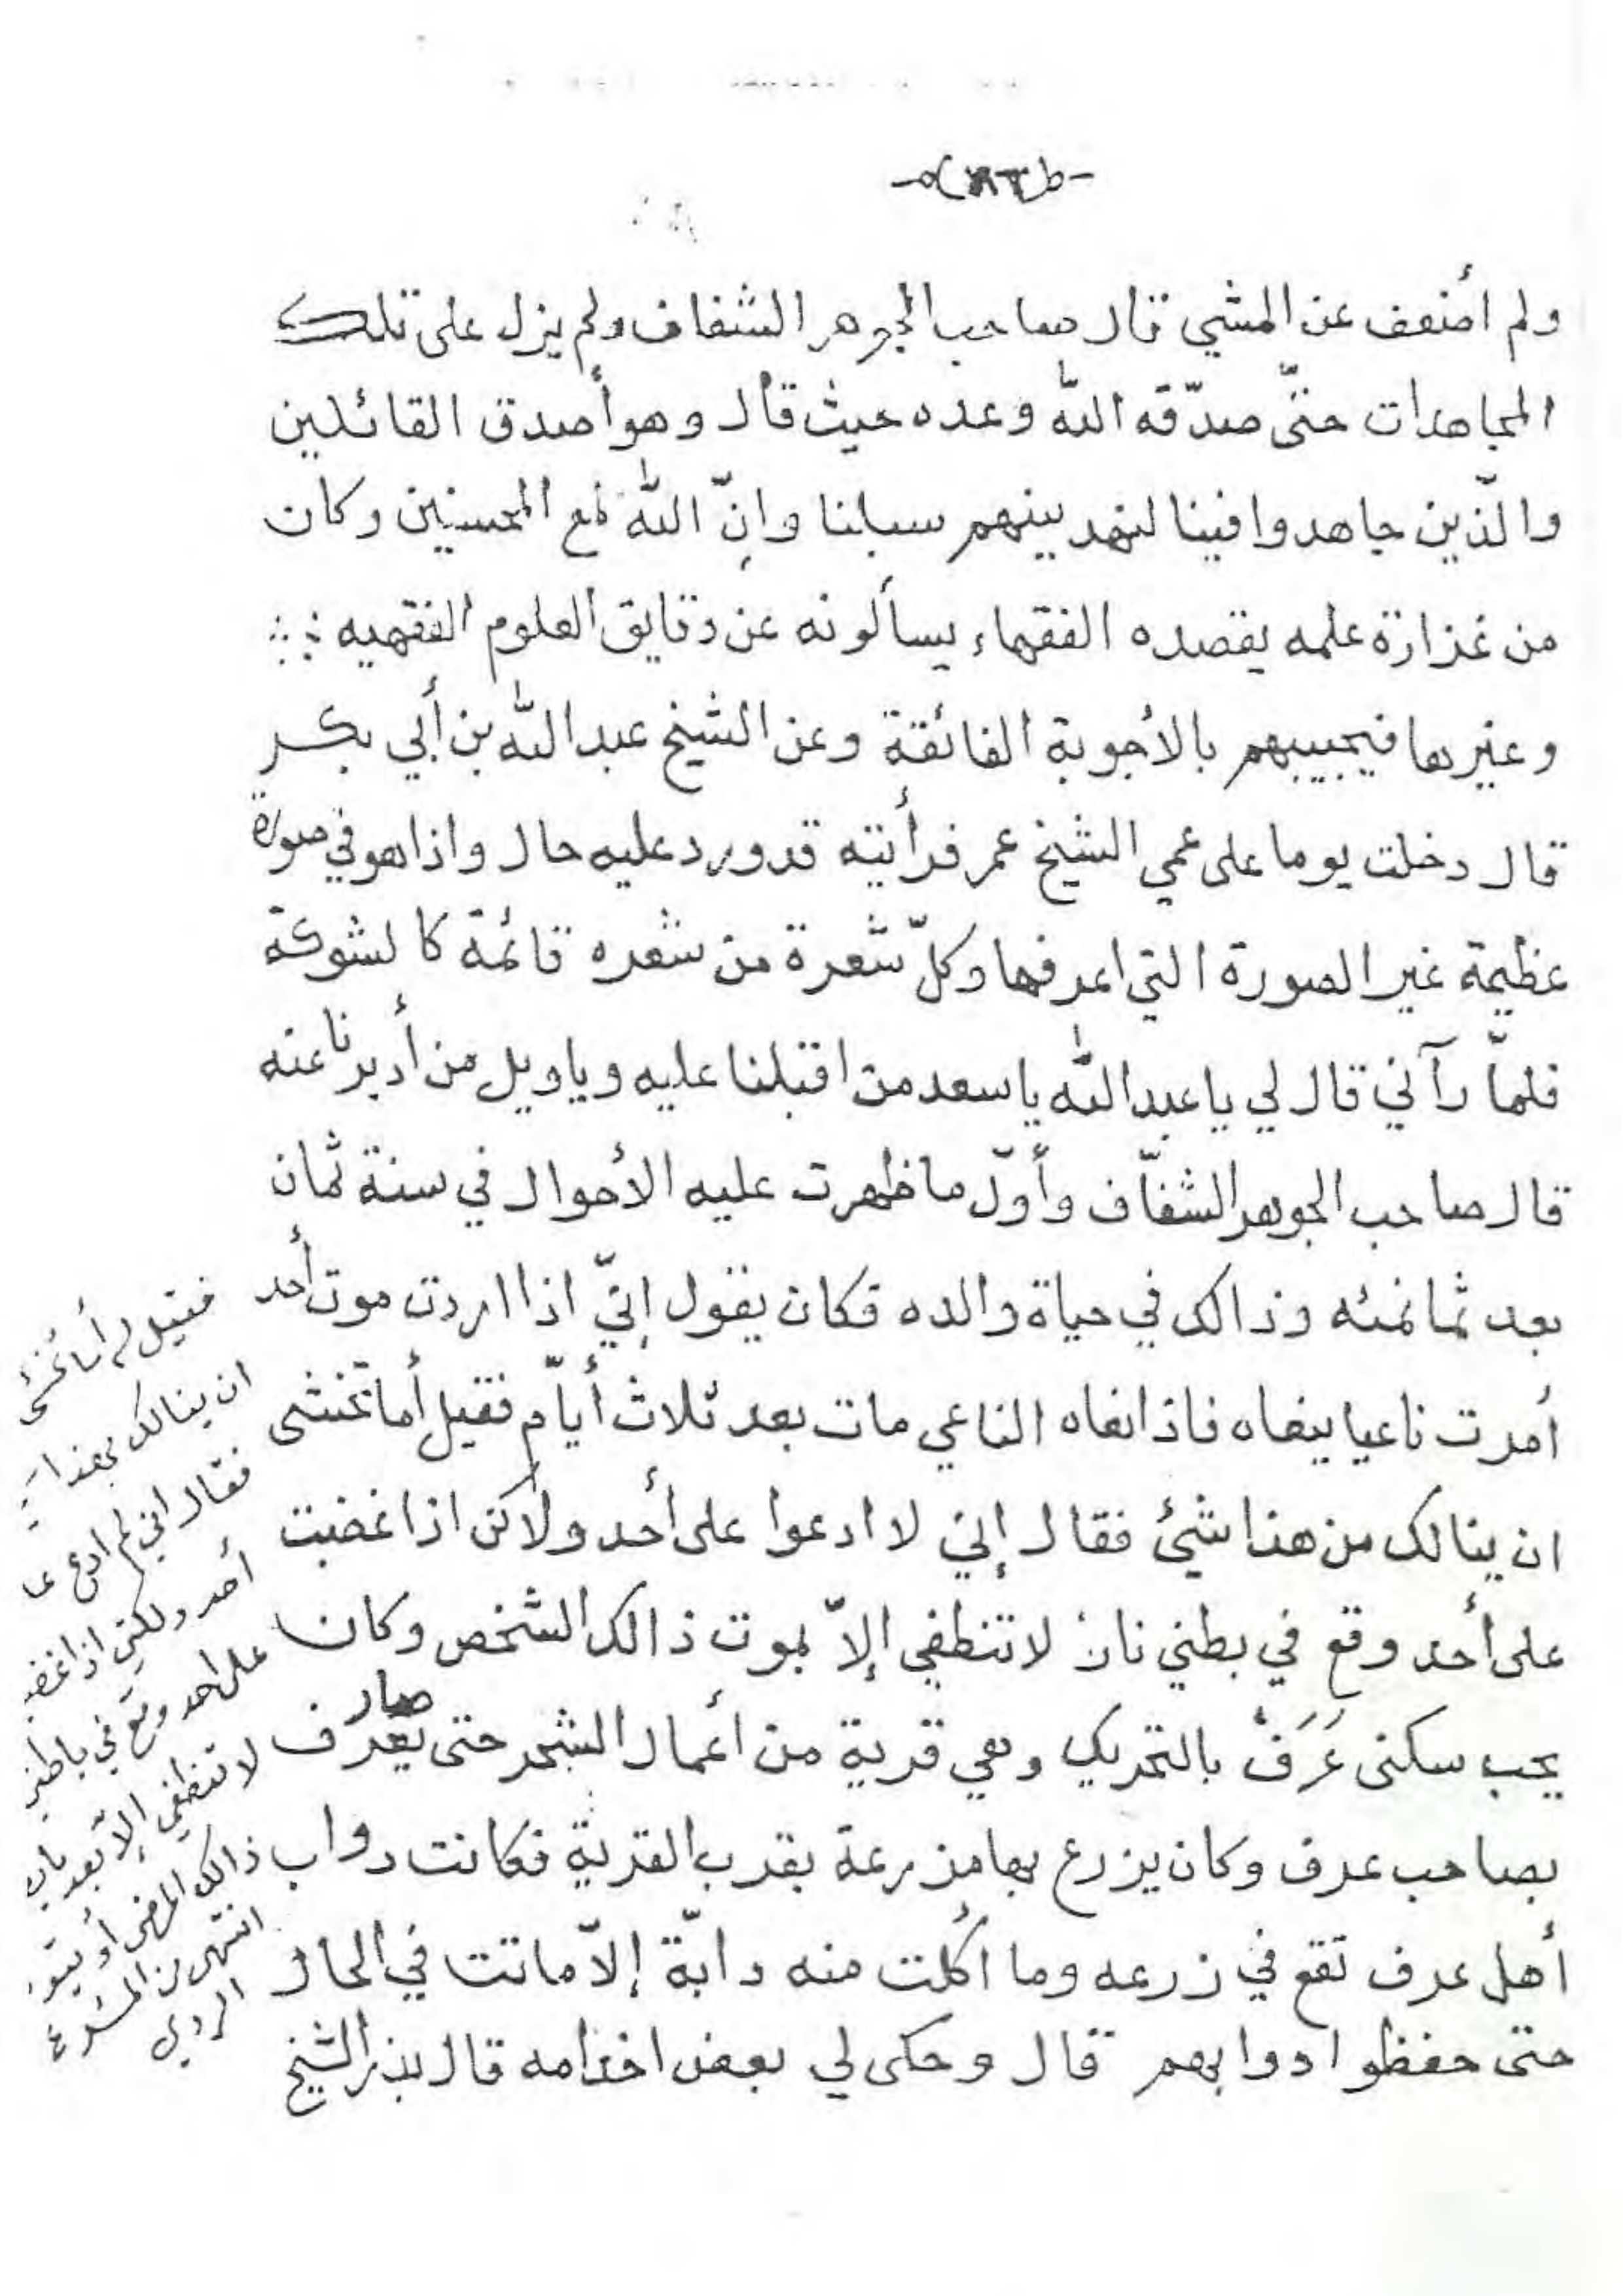 ولم أضعف عن المشي قال صاحب الجوهر الشفاف ولم يزل على تلك
المجاهدات حتّى صدّقه اللّه وعده حيث قال وهو أصدق القائلين
والّذين جاهدوا فينا لنهدينهم سبلنا وإنّ اللّه لمع المحسنين وكان
من غزارة علمه يقصده الفقهاء يسألونه عن دقايق العلوم الفقهيه
وغيرها فيجيبهم بالأجوبة الفائقة وعن الشيخ عبد اللّه بن أبي بكر
قال دخلت يوما على عمي الشيخ عمر فرأيته قد ورد عليه حال واذا هو في صورة
عظيمة غير الصورة التي اعرفها وكلّ شعرة من شعره قائمة كالشوكة
فلمّا رآني قال لي يا عبد اللّه يا سعد من اقبلنا عليه ويا ويل من أدبرنا عنه
قال صاحب الجوهر الشفّاف وأوّل ما ظهرت عليه الأحوال في سنة ثمان
بعد ثمانمئه وذالك في حياة والده فكان يقول إنيّ اذا اردت موت أحد
أمرت ناعيا ينعاه فاذا نعاه الناعي مات بعد ثلاث أيّام فقيل أما تخشى
ان ينالك من هذا شئ فقال إني لا ادعوا على أحد ولاكن اذا غضبت
على أحد وقع في بطني نار لا تنطفي إلاّ بموت ذالك الشخص وكان
يحب سكنى عَرَف بالتحريك وهي قرية من أعمال الشحر حتى صار يعرف
بصاحب عرف وكان يزرع بها مزرعة بقرب القرية فكانت دواب
أهل عرف تقع في زرعه وما أكلت منه دابّة إلاّ ماتت في الحال
حتى حفظوا دوابهم قال وحكى لي بعض اخدامه قال بذر الشيخ
فقيل لم أما تخشى
ان ينالك بهذا
فقال اني لم ادع عا
أحد ولكني اذا غضـ
على احد وقع في باطني
لا تنطفي إلاّ بعد
ذالك أو يتو
انتهى من المشرع
الروي